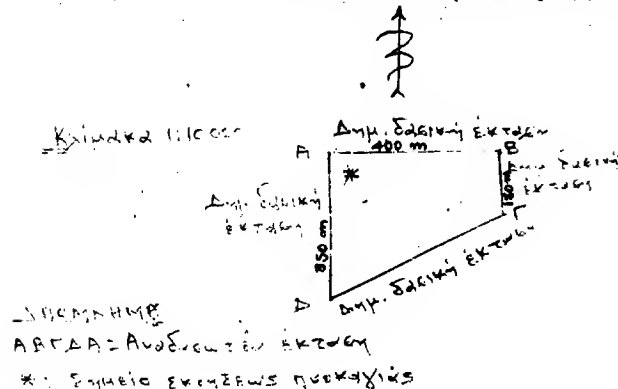 Κλίμακα 1:10000
Δημ. δασική έκταση
400 m
Α
Β
Δημ. δασική
έκταση
150 m
Δημ. δασική
έκταση
850 m
Γ
Δ
Δημ. δασική έκταση
ΥΠΟΜΝΗΜΑ
ΑΒΓΔΑ = Αναδασωτέα έκταση
* : Σημείο εκρήξεως πυρκαγιάς